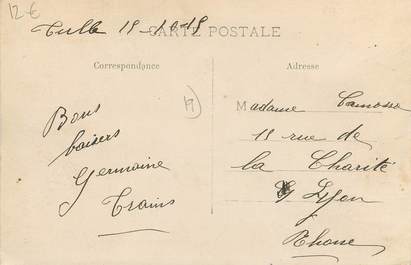 12-€
Tulle 19-10-19
CARTE POSTALE
Correspondance
Adresse
19
Bons
baisers
Germaine
Trains
Madame Camosse
18 rue de
la Charité
Lyon
Rhone